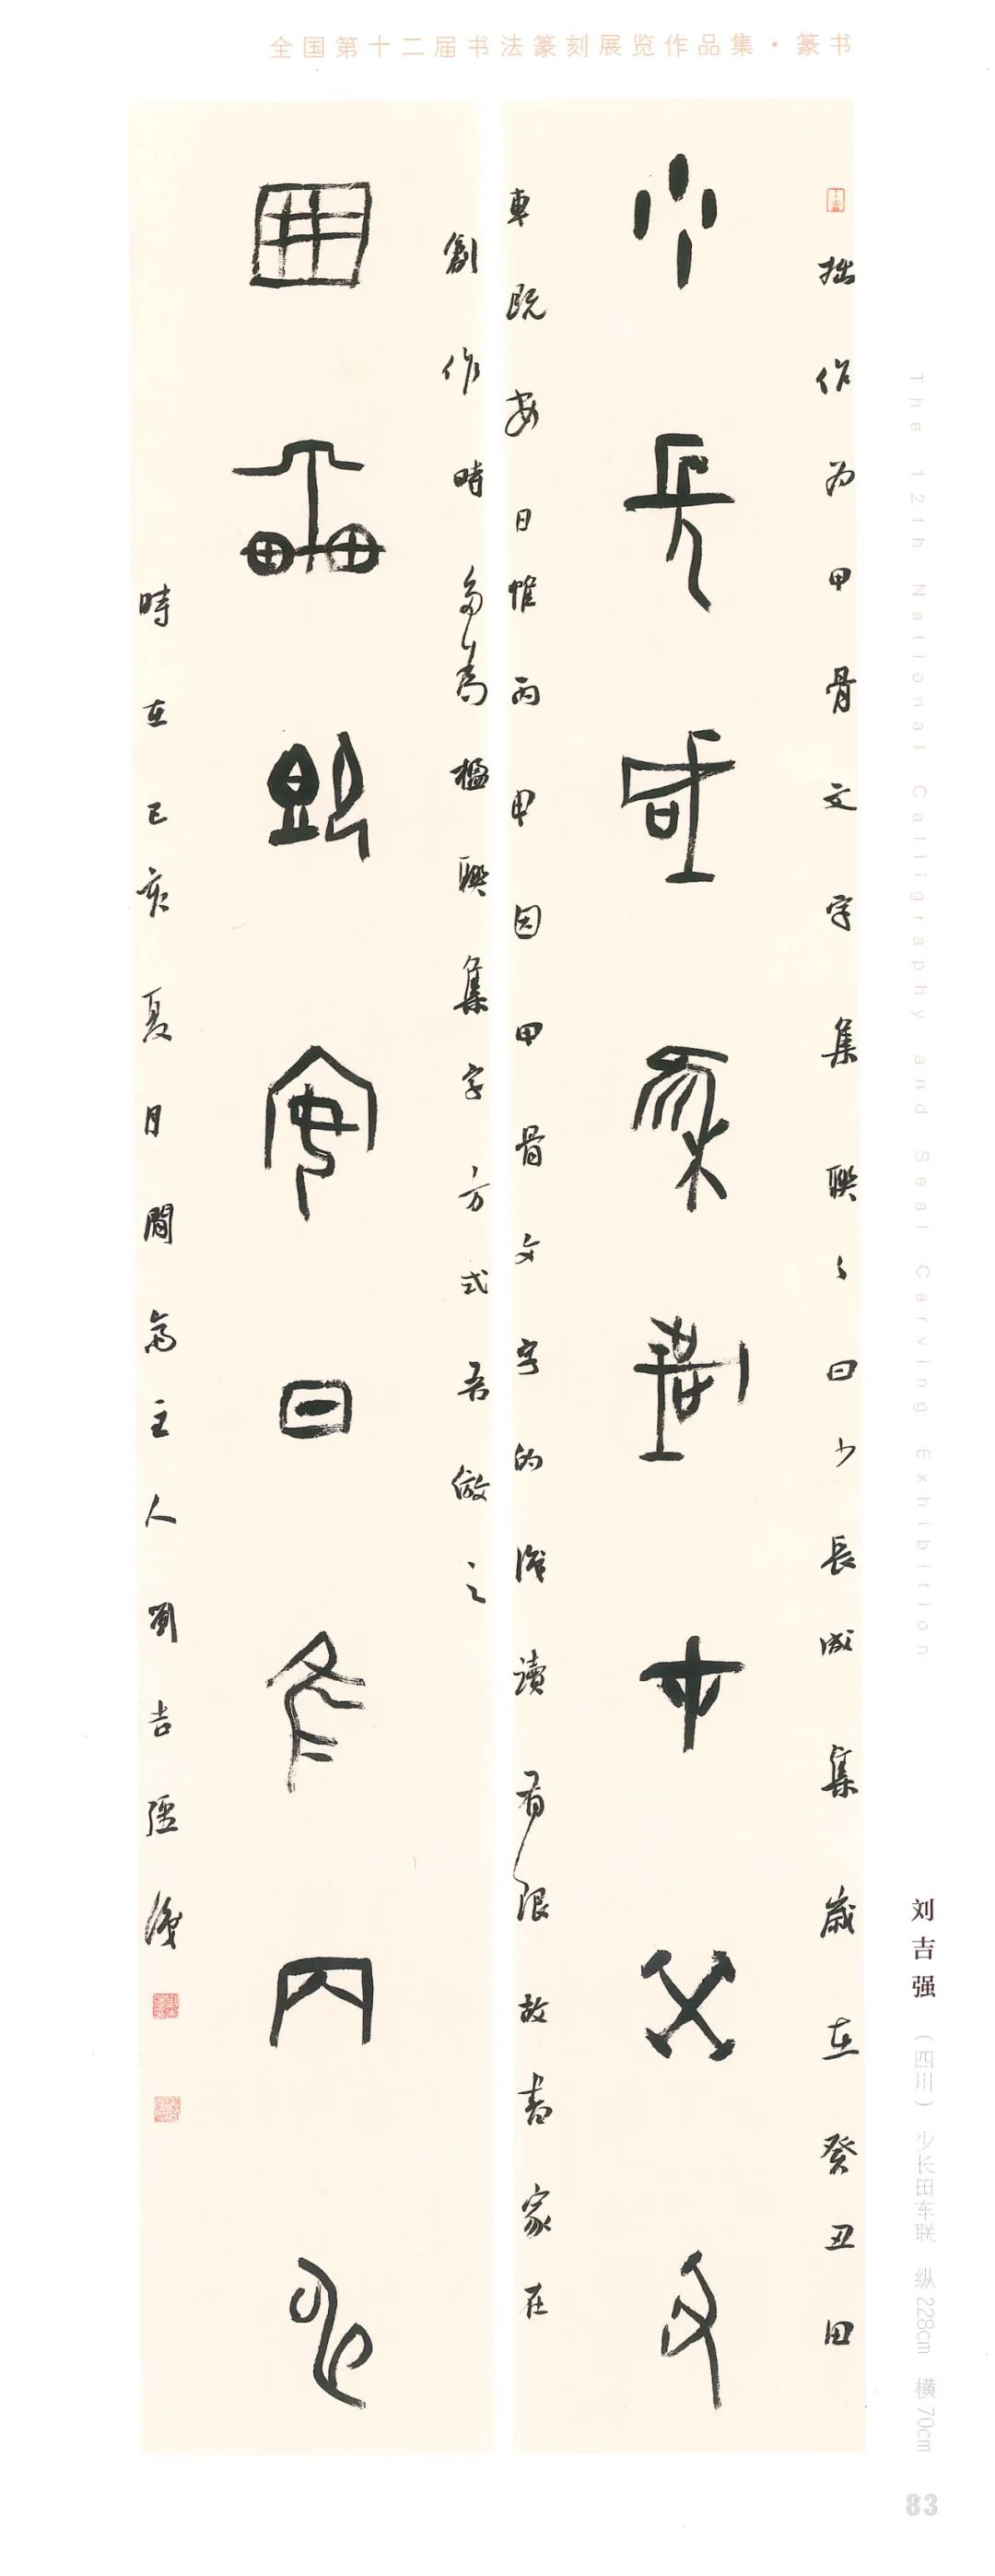 全国第十二届书法篆刻展览作品集·篆书
拙作为甲骨文字集聯々曰少長咸集歲在癸丑田
少長咸集歲在癸丑
車既安日惟丙申因甲骨文字的識讀有限故書家在
創作時多為楹聯集字方式吾倣之
田車既安日隹丙申
時在己亥夏月閒齋主人劉吉强識
The 12th National Calligraphy and Seal Carving Exhibition
刘吉强（四川） 少长田车联 纵228cm 横70cm
83